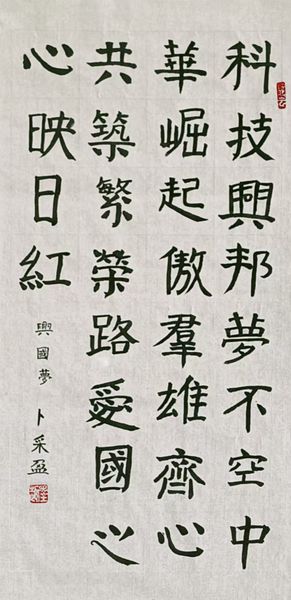 科技興邦夢不空中
華崛起傲羣雄齊心
共築繁榮路愛國之
心映日紅
興國夢
卜采盈